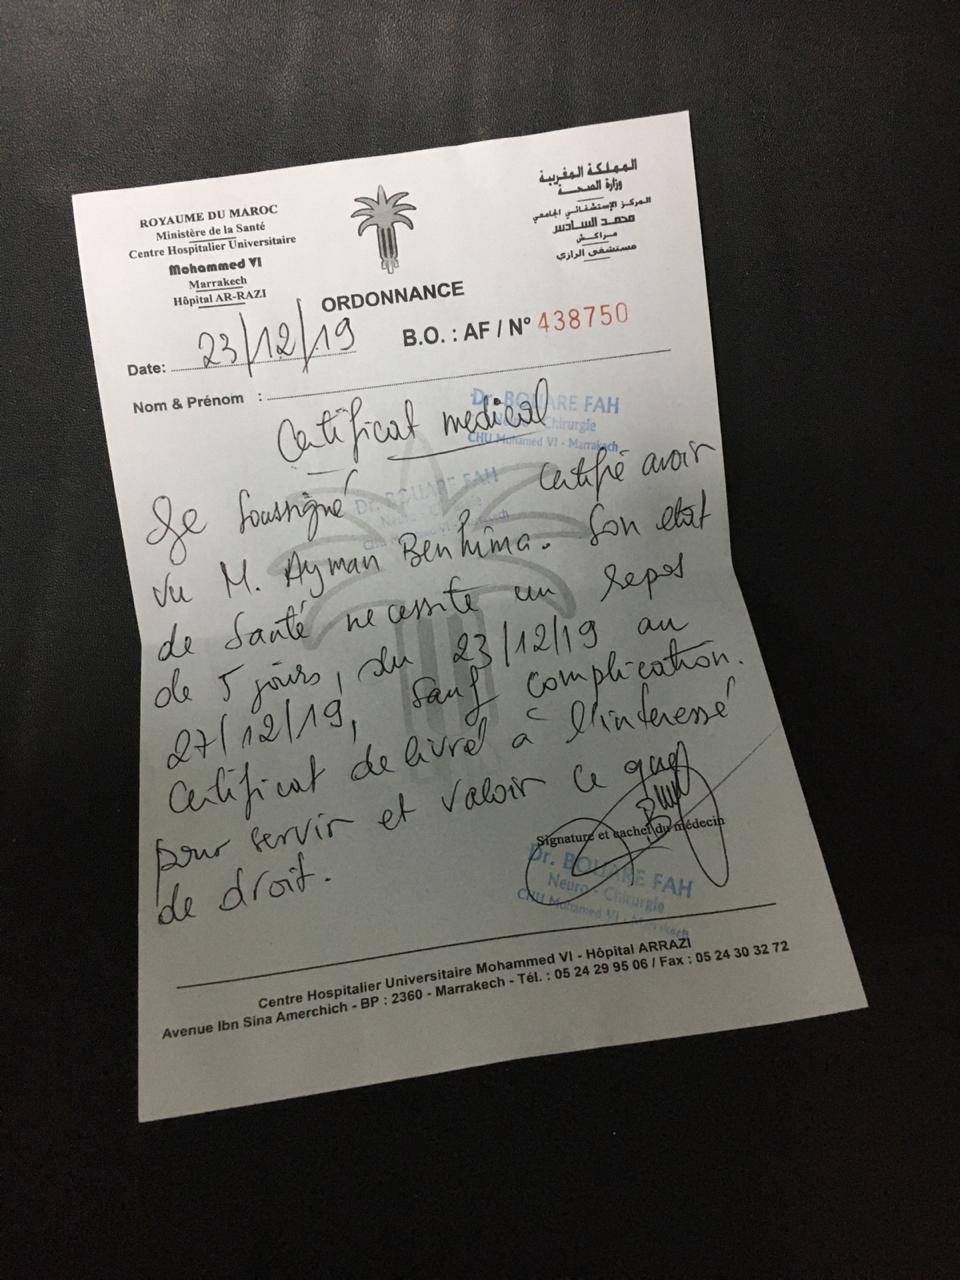 ROYAUME DU MAROC
Ministère de la Santé
Centre Hospitalier Universitaire
Mohammed VI
Marrakech
Hôpital AR-RAZI
المملكة المغربية
وزارة الصحة
المركز الإستشفائي الجامعي
محمد السادس
مراكش
مستشفى الرازي
ORDONNANCE
B.O. : AF / N° 438750
Date: 23/12/19
Nom & Prénom :
Dr. BOUARE FAH
Neuro - Chirurgie
CHU Mohamed VI - Marrakech
Certificat medical
Dr. BOUARE FAH
Neuro - Chirurgie
CHU Mohamed VI - Marrakech
Je soussigné certifié avoir
vu M. Ayman Benhima. Son etat
de Santé necessite un repos
de 5 jours, du 23/12/19 au
27/12/19, sauf complication.
Certificat delivré à l'interessé
pour servir et valoir ce que
de droit.
Signature et cachet du médecin
Dr. BOUARE FAH
Neuro - Chirurgie
CHU Mohamed VI - Marrakech
Centre Hospitalier Universitaire Mohammed VI - Hôpital ARRAZI
Avenue Ibn Sina Amerchich - BP : 2360 - Marrakech - Tél. : 05 24 29 95 06 / Fax : 05 24 30 32 72